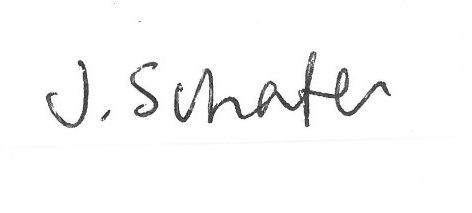 J. Schafer